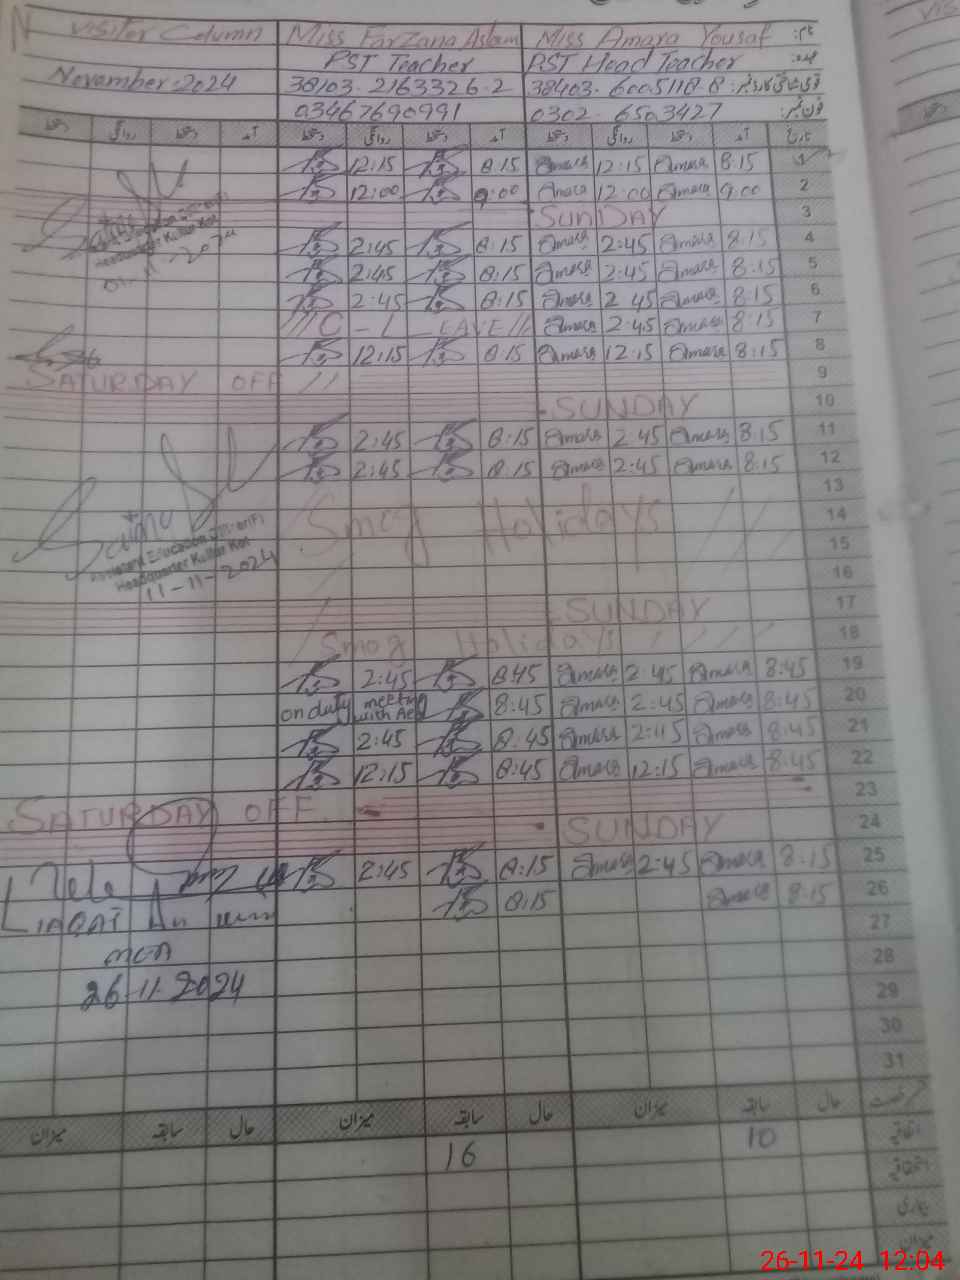 Visitor Column Miss Farzana Aslam Miss Amara Yousaf نام:
PST Teacher PST Head Teacher عہدہ:
November-2024 38103-2163326-2 38403-6005118-8 قومی شناختی کارڈ نمبر:
03467690991 0302-6503427 فون نمبر:
دستخط روانگی دستخط آمد دستخط روانگی دستخط آمد دستخط روانگی دستخط آمد تاریخ
12:15 8:15 Amara 12:15 Amara 8:15 1
12:00 9:00 Amara 12:00 Amara 9:00 2
SUNDAY 3
2:45 8:15 Amara 2:45 Amara 8:15 4
Headquarter Kullur Kot
2:45 8:15 Amara 2:45 Amara 8:15 5
2:45 8:15 Amara 2:45 Amara 8:15 6
C-LEAVE Amara 2:45 Amara 8:15 7
12:15 8:15 Amara 12:15 Amara 8:15 8
SATURDAY OFF 9
SUNDAY 10
2:45 8:15 Amara 2:45 Amara 8:15 11
2:45 8:15 Amara 2:45 Amara 8:15 12
13
Smog Holidays 14
Assistant Education Officer(F)
Headquarter Kullur Kot
11-11-2024
15
16
SUNDAY 17
Smog Holidays 18
2:45 8:45 Amara 2:45 Amara 8:45 19
on duty meeting with AEO 8:45 Amara 2:45 Amara 8:45 20
2:45 8:45 Amara 2:15 Amara 8:45 21
12:15 8:45 Amara 12:15 Amara 8:45 22
SATURDAY OFF 23
SUNDAY 24
2:45 8:15 Amara 2:45 Amara 8:15 25
LIAQAT Ali 8:15 Amara 8:15 26
27
MEA 28
26-11-2024 29
30
31
میزان سابقہ حال میزان سابقہ حال میزان سابقہ حال رخصت
16 10 اتفاقیہ
استحقاقیہ
بیماری
میزان
26-11-24 12:04